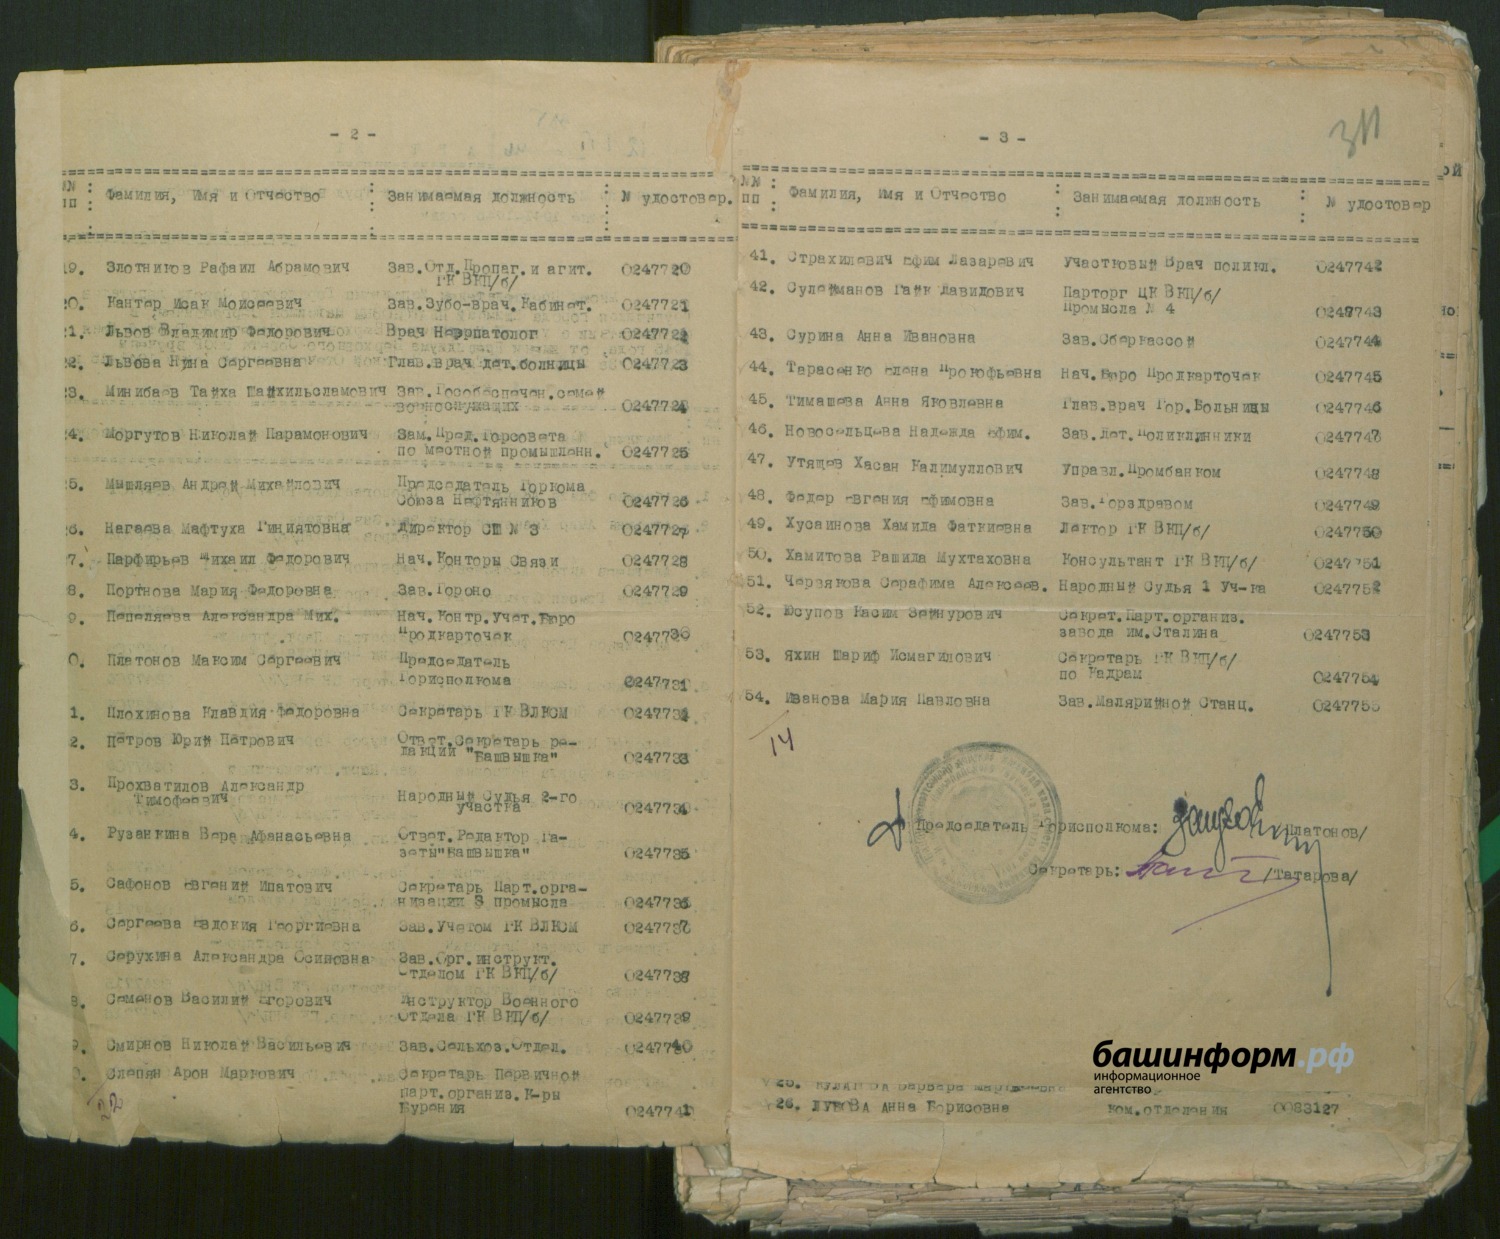 - 2 -
№№ пп : Фамилия, Имя и Отчество : Занимаемая должность : № удостовер.
19. Злотников Рафаил Абрамович Зав.Отд.Пропаг.и агит. 0247720
ГК ВКП/б/
20. Кантер Исак Моисеевич Зав.Зубо-врач.Кабинет. 0247721
21. Львов Владимир Федорович Врач
22. Львова Нина Сергеевна Глав.врач дет.болницы 0247723
23. Минибаев Тайха Шайхильсламович Зав.Гособеспечен.семей
военослужащих 0247724
24. Моргутов Николай Парамонович Зам.Пред.Горсовета
по местной промышленн. 0247725
25. Мышляев Андрей Михайлович Председатель Горкома
Союза Нефтянников 0247726
26. Нагаева Мафтуха Гиниятовна Директор СШ № 3 0247727
7. Парфирьев Михаил Федорович Нач.Конторы Связи 0247728
8. Портнова Мария Федоровна Зав.Гороно 0247729
9. Пепеляева Александра Мих. Нач.Контр.Учет.Бюро
Продкарточек 0247730
0. Платонов Максим Сергеевич Председатель
Горисполкома 0247731
1. Плохинова Клавдия Федоровна Секретарь ГК ВЛКСМ
2. Петров Юрий Петрович Ответ.Секретарь ре-
дакции "Башвышка" 0247733
3. Прохватилов Александр
Тимофеевич Народный Судья 2-го
участка 0247734
4. Рузанкина Вера Афанасьевна Ответ.Редактор Га-
зеты"Башвышка" 0247735
5. Сафонов Евгений Ипатович Секретарь Парт.орга-
низации 3 промысла 0247736
6. Сергеева Евдокия Георгиевна Зав.Учетом ГК ВЛКСМ 0247737
7. Серухина Александра Осиповна Зав.Орг.инструкт.
Отделом ГК ВКП/б/ 0247738
8. Семенов Василий Егорович Инструктор Военного
Отдела ГК ВКП/б/ 0247739
9. Смирнов Николай Васильевич Зав.Сельхоз.Отдел. 0247740
0. Слепян Арон Маркович Секретарь Первичной
парт.организ.К-ры
Бурения 0247741
22
- 3 -
311
№№ пп : Фамилия, Имя и Отчество : Занимаемая должность : № удостовер
41. Страхилевич Ефим Лазаревич Участковый Врач поликл. 0247742
42. Сулейманов Гайк Давидович Парторг ЦК ВКП/б/
Промысла № 4 0247743
43. Сурина Анна Ивановна Зав.Сберкассой 0247744
44. Тарасенко Елена Прокофьевна Нач.Бюро Продкарточек 0247745
45. Тимашева Анна Яковлевна Глав.врач Гор.Больницы 0247746
46. Новосельцева Надежда Ефим. Зав.дет.Поликлинники 0247747
47. Утящев Хасан Калимуллович Управл.Промбанком 0247748
48. Федер Евгения Ефимовна Зав.Горздравом 0247749
49. Хусаинова Хамида Фаткиевна Лектор ГК ВКП/б/ 0247750
50. Хамитова Рашида Мухтаховна Консультант ГК ВКП/б/ 0247751
51. Червякова Серафима Алексеев. Народный Судья 1 Уч-ка 0247752
52. Юсупов Касим Зайнурович Секрет.Парт.организ.
завода им.Сталина 0247753
53. Яхин Шариф Исмагилович Секретарь ГК ВКП/б/
по Кадрам 0247754
54. Иванова Мария Павловна Зав.Малярийной Станц. 0247755
14
Председатель Горисполкома: /Платонов/
Секретарь: /Татарова/
башинформ.рф
информационное
агентство
25. Варвара
26. Анна Борисовна ком.отделения 0083127